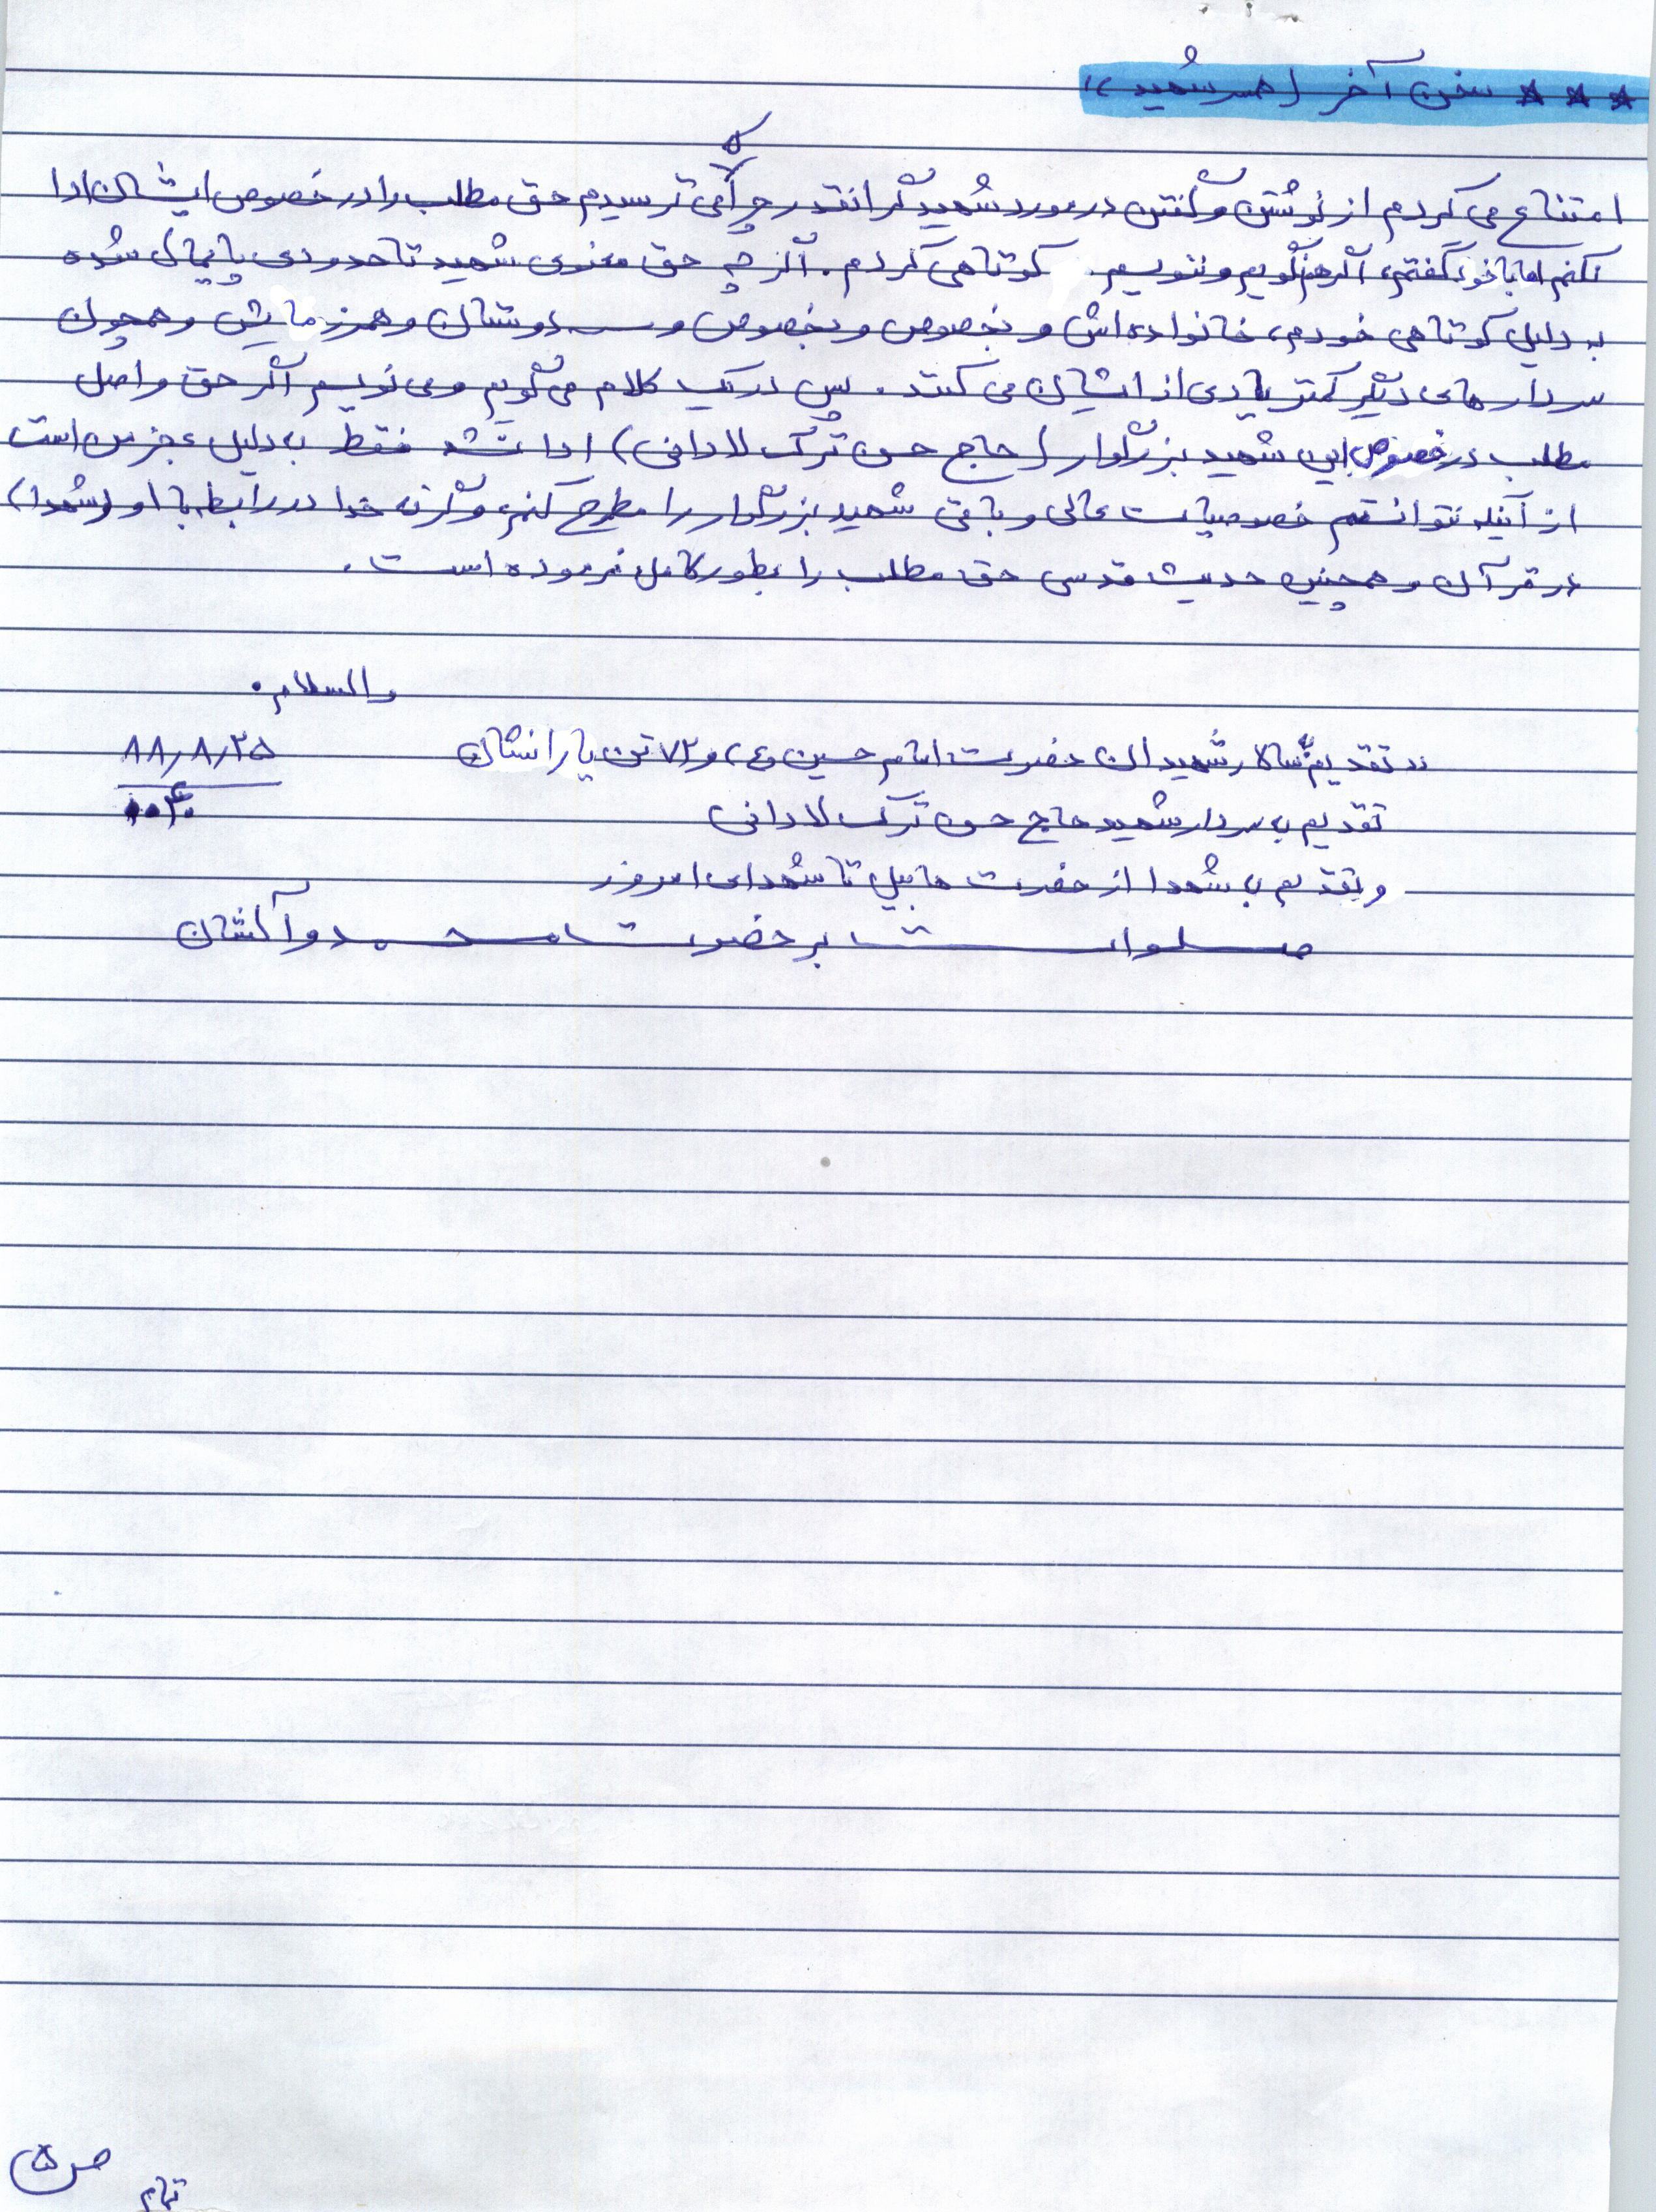 *** سخن آخر (همسر شهید)،
امتناع می کردم از نوشتن و گفتن در مورد شهید گرانقدر چرا که می ترسیدم حق مطلب را در خصوص ایشان ادا
نکنم اما با خود گفتم، اگر هم نگویم و ننویسم. کوتاهی کردم. اگر چه حق معنوی شهید تا حدودی پایمال شده
به دلیل کوتاهی خودم، خانواده اش و بخصوص و بخصوص و دوستان و همرزمایش و همچون
سردارهای دیگر کمتر یادی از ایشان می کنند. پس در یک کلام می گویم و می نویسم اگر حق و اصل
مطلب در خصوص این شهید بزرگوار (حاج حسن ترک لادانی) ادا نشد فقط به دلیل عجز من است
از آینکه نتوانستم خصوصیات عالی و باقی شهید بزرگوار را مطرح کنم، و گرنه خدا در رابطه با او (شهدا)
در قرآن و همچنین حدیث قدسی حق مطلب را بطور کامل فرموده است.
والسلام.
تقدیم به سالار شهیدان حضرت امام حسین (ع) و ۷۲ تن یارانشان
۸۸/۸/۲۵
تقدیم به سردار شهید حاج حسن ترک لادانی
و تقدیم به شهدا از حضرت هابیل تا شهدای امروز
صلوات بر حضرت محمد و آلشان
ص ۵
تمام